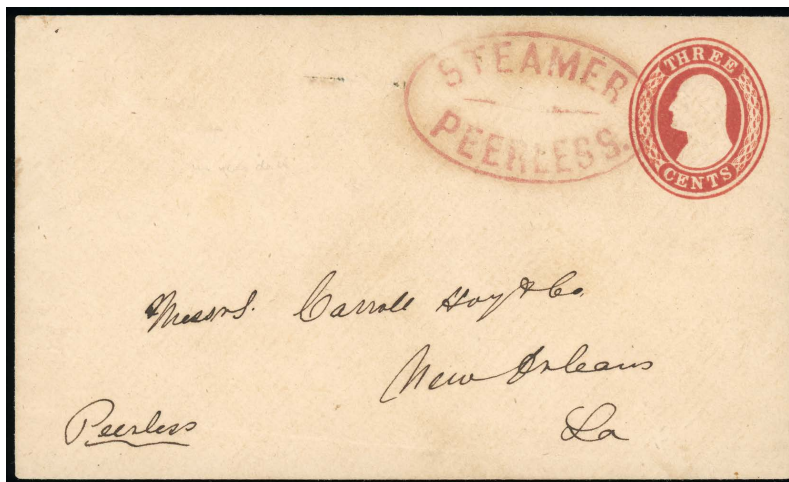 STEAMER
PEERLESS.
THREE
CENTS
Messrs. Carroll Hoy & Co.
New Orleans
La
Peerless